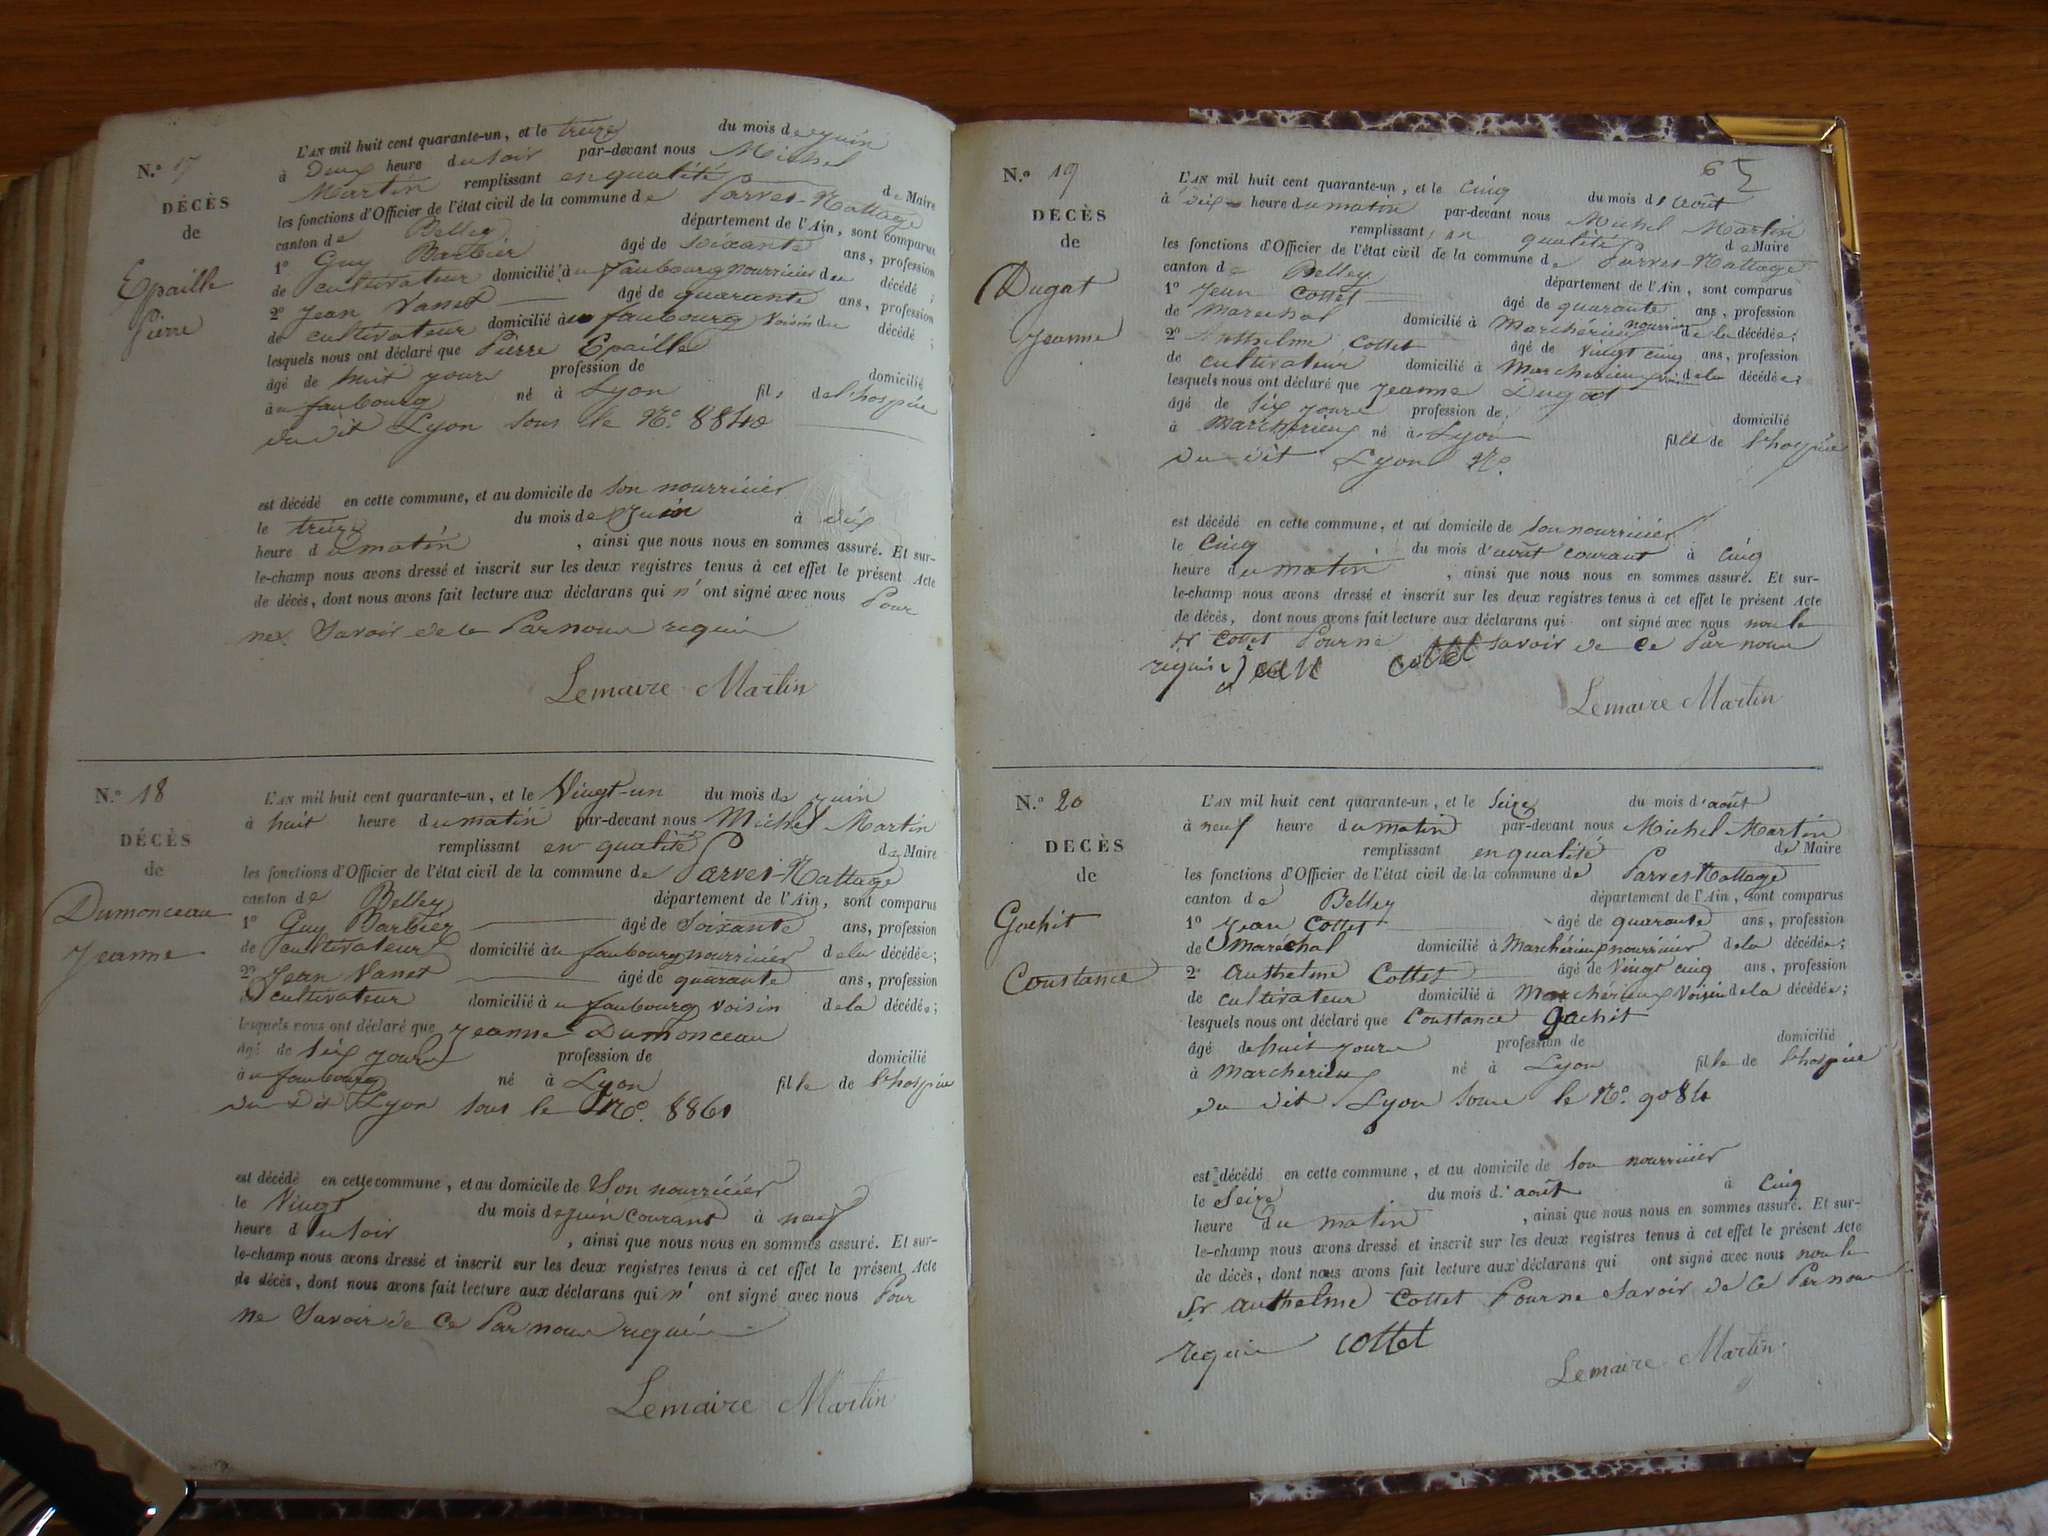 N.° 17
DÉCÈS
de
Epaille
Pierre
L'AN mil huit cent quarante-un, et le treize du mois de juin
à Deux heure du soir par-devant nous Michel
Martin remplissant en qualité de Maire
les fonctions d'Officier de l'état civil de la commune de Parves-Nattage
canton de Belley département de l'Ain, sont comparus
1° Guy Barbier âgé de soixante ans, profession
de cultivateur domicilié au faubourg nourricier du décédé;
2° Jean Vanet âgé de quarante ans, profession
de cultivateur domicilié au faubourg voisin du décédé;
lesquels nous ont déclaré que Pierre Epaille
âgé de huit jours profession de domicilié
au faubourg né à Lyon fils de l'hospice
du dit Lyon sous le N° 8840
est décédé en cette commune, et au domicile de son nourricier
le treize du mois de Juin à dix
heure du matin, ainsi que nous nous en sommes assuré. Et sur-
le-champ nous avons dressé et inscrit sur les deux registres tenus à cet effet le présent Acte
de décès, dont nous avons fait lecture aux déclarans qui n'ont signé avec nous Pour
ne Savoir de ce Par nous requis
Lemaire Martin
N.° 18
DÉCÈS
de
Dumonceau
Jeanne
L'AN mil huit cent quarante-un, et le Vingt-un du mois de juin
à huit heure du matin par-devant nous Michel Martin
remplissant en qualité de Maire
les fonctions d'Officier de l'état civil de la commune de Parves-Nattage
canton de Belley département de l'Ain, sont comparus
1° Guy Barbier âgé de Soixante ans, profession
de cultivateur domicilié au faubourg nourricier de la décédée;
2° Jean Vanet âgé de quarante ans, profession
cultivateur domicilié au faubourg voisin de la décédée;
lesquels nous ont déclaré que Jeanne Dumonceau
âgé de six jours profession de domicilié
au faubourg né à Lyon fille de l'hospice
du Dit Lyon sous le N° 8861
est décédé en cette commune, et au domicile de Son nourricier
le Vingt du mois de juin courant à neuf
heure du soir, ainsi que nous nous en sommes assuré. Et sur-
le-champ nous avons dressé et inscrit sur les deux registres tenus à cet effet le présent Acte
de décès, dont nous avons fait lecture aux déclarans qui n'ont signé avec nous Pour
ne Savoir de Ce Par nous requis
Lemaire Martin
65
N.° 19
DÉCÈS
de
Dugat
Jeanne
L'AN mil huit cent quarante-un, et le cinq du mois d'août
à dix heure du matin par-devant nous Michel Martin
remplissant en qualité de Maire
les fonctions d'Officier de l'état civil de la commune de Parves-Nattage
canton de Belley département de l'Ain, sont comparus
1° Jean Cottet âgé de quarante ans, profession
de Marechal domicilié à Marchérieux nourricier de la décédée;
2° Anthelme Cottet âgé de Vingt cinq ans, profession
de cultivateur domicilié à Marcherieux voisin de la décédée;
lesquels nous ont déclaré que Jeanne Dugat
âgé de six jours profession de domicilié
à Marcherieux né à Lyon fille de l'hospice
du dit Lyon N°
est décédé en cette commune, et au domicile de son nourricier
le Cinq du mois d'août courant à cinq
heure du matin, ainsi que nous nous en sommes assuré. Et sur-
le-champ nous avons dressé et inscrit sur les deux registres tenus à cet effet le présent Acte
de décès, dont nous avons fait lecture aux déclarans qui ont signé avec nous non le
Sr Cottet Pour ne savoir de Ce Par nous
requis cottet
Lemaire Martin
N.° 20
DECÈS
de
Gachit
Constance
L'AN mil huit cent quarante-un, et le Seize du mois d'août
à neuf heure du matin par-devant nous Michel Martin
remplissant en qualité de Maire
les fonctions d'Officier de l'état civil de la commune de Parves Nattage
canton de Belley département de l'Ain, sont comparus
1° Jean Cottet âgé de quarante ans, profession
de Maréchal domicilié à Marchérieux nourricier de la décédée;
2° Anthelme Cottet âgé de Vingt cinq ans, profession
de cultivateur domicilié à Marchérieux Voisin de la décédée;
lesquels nous ont déclaré que Constance Gachit
âgé de huit jours profession de domicilié
à Marcherieux né à Lyon fille de l'hospice
du dit Lyon sous le N° 9084
est décédé en cette commune, et au domicile de son nourricier
le Seize du mois d'août à Cinq
heure du matin, ainsi que nous nous en sommes assuré. Et sur-
le-champ nous avons dressé et inscrit sur les deux registres tenus à cet effet le présent Acte
de décès, dont nous avons fait lecture aux déclarans qui ont signé avec nous non le
Sr Anthelme Cottet Pour ne Savoir de Ce Par nous
requis cottet
Lemaire Martin